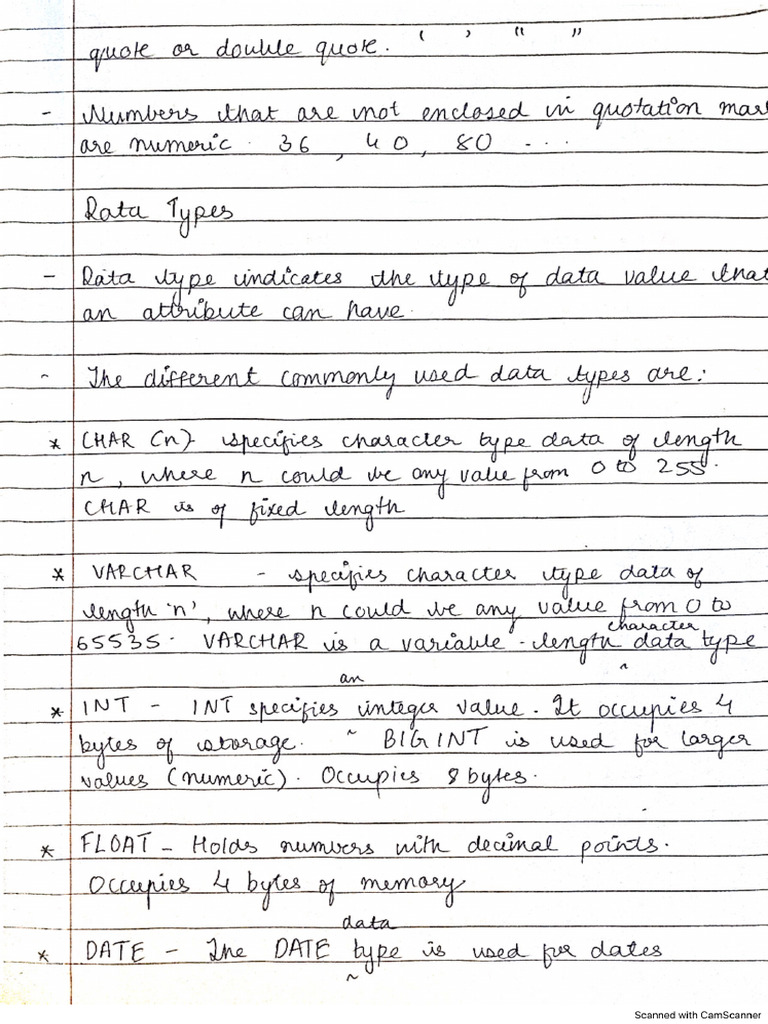 quote or double quote. ‘ ’ “ ”
- Numbers that are not enclosed in quotation mar
are numeric. 36, 40, 80 ...
Data Types
- Data type indicates the type of data value that
an attribute can have.
- The different commonly used data types are:
* CHAR (n)- specifies character type data of length
n, where n could be any value from 0 to 255.
CHAR is of fixed length
* VARCHAR - specifies character type data of
length 'n', where n could be any value from 0 to
character
65535. VARCHAR is a variable-length data type
an
* INT - INT specifies integer value. It occupies 4
bytes of storage. BIGINT is used for larger
values (numeric). Occupies 8 bytes.
* FLOAT - Holds numbers with decimal points.
Occupies 4 bytes of memory
data
* DATE - The DATE type is used for dates
Scanned with CamScanner